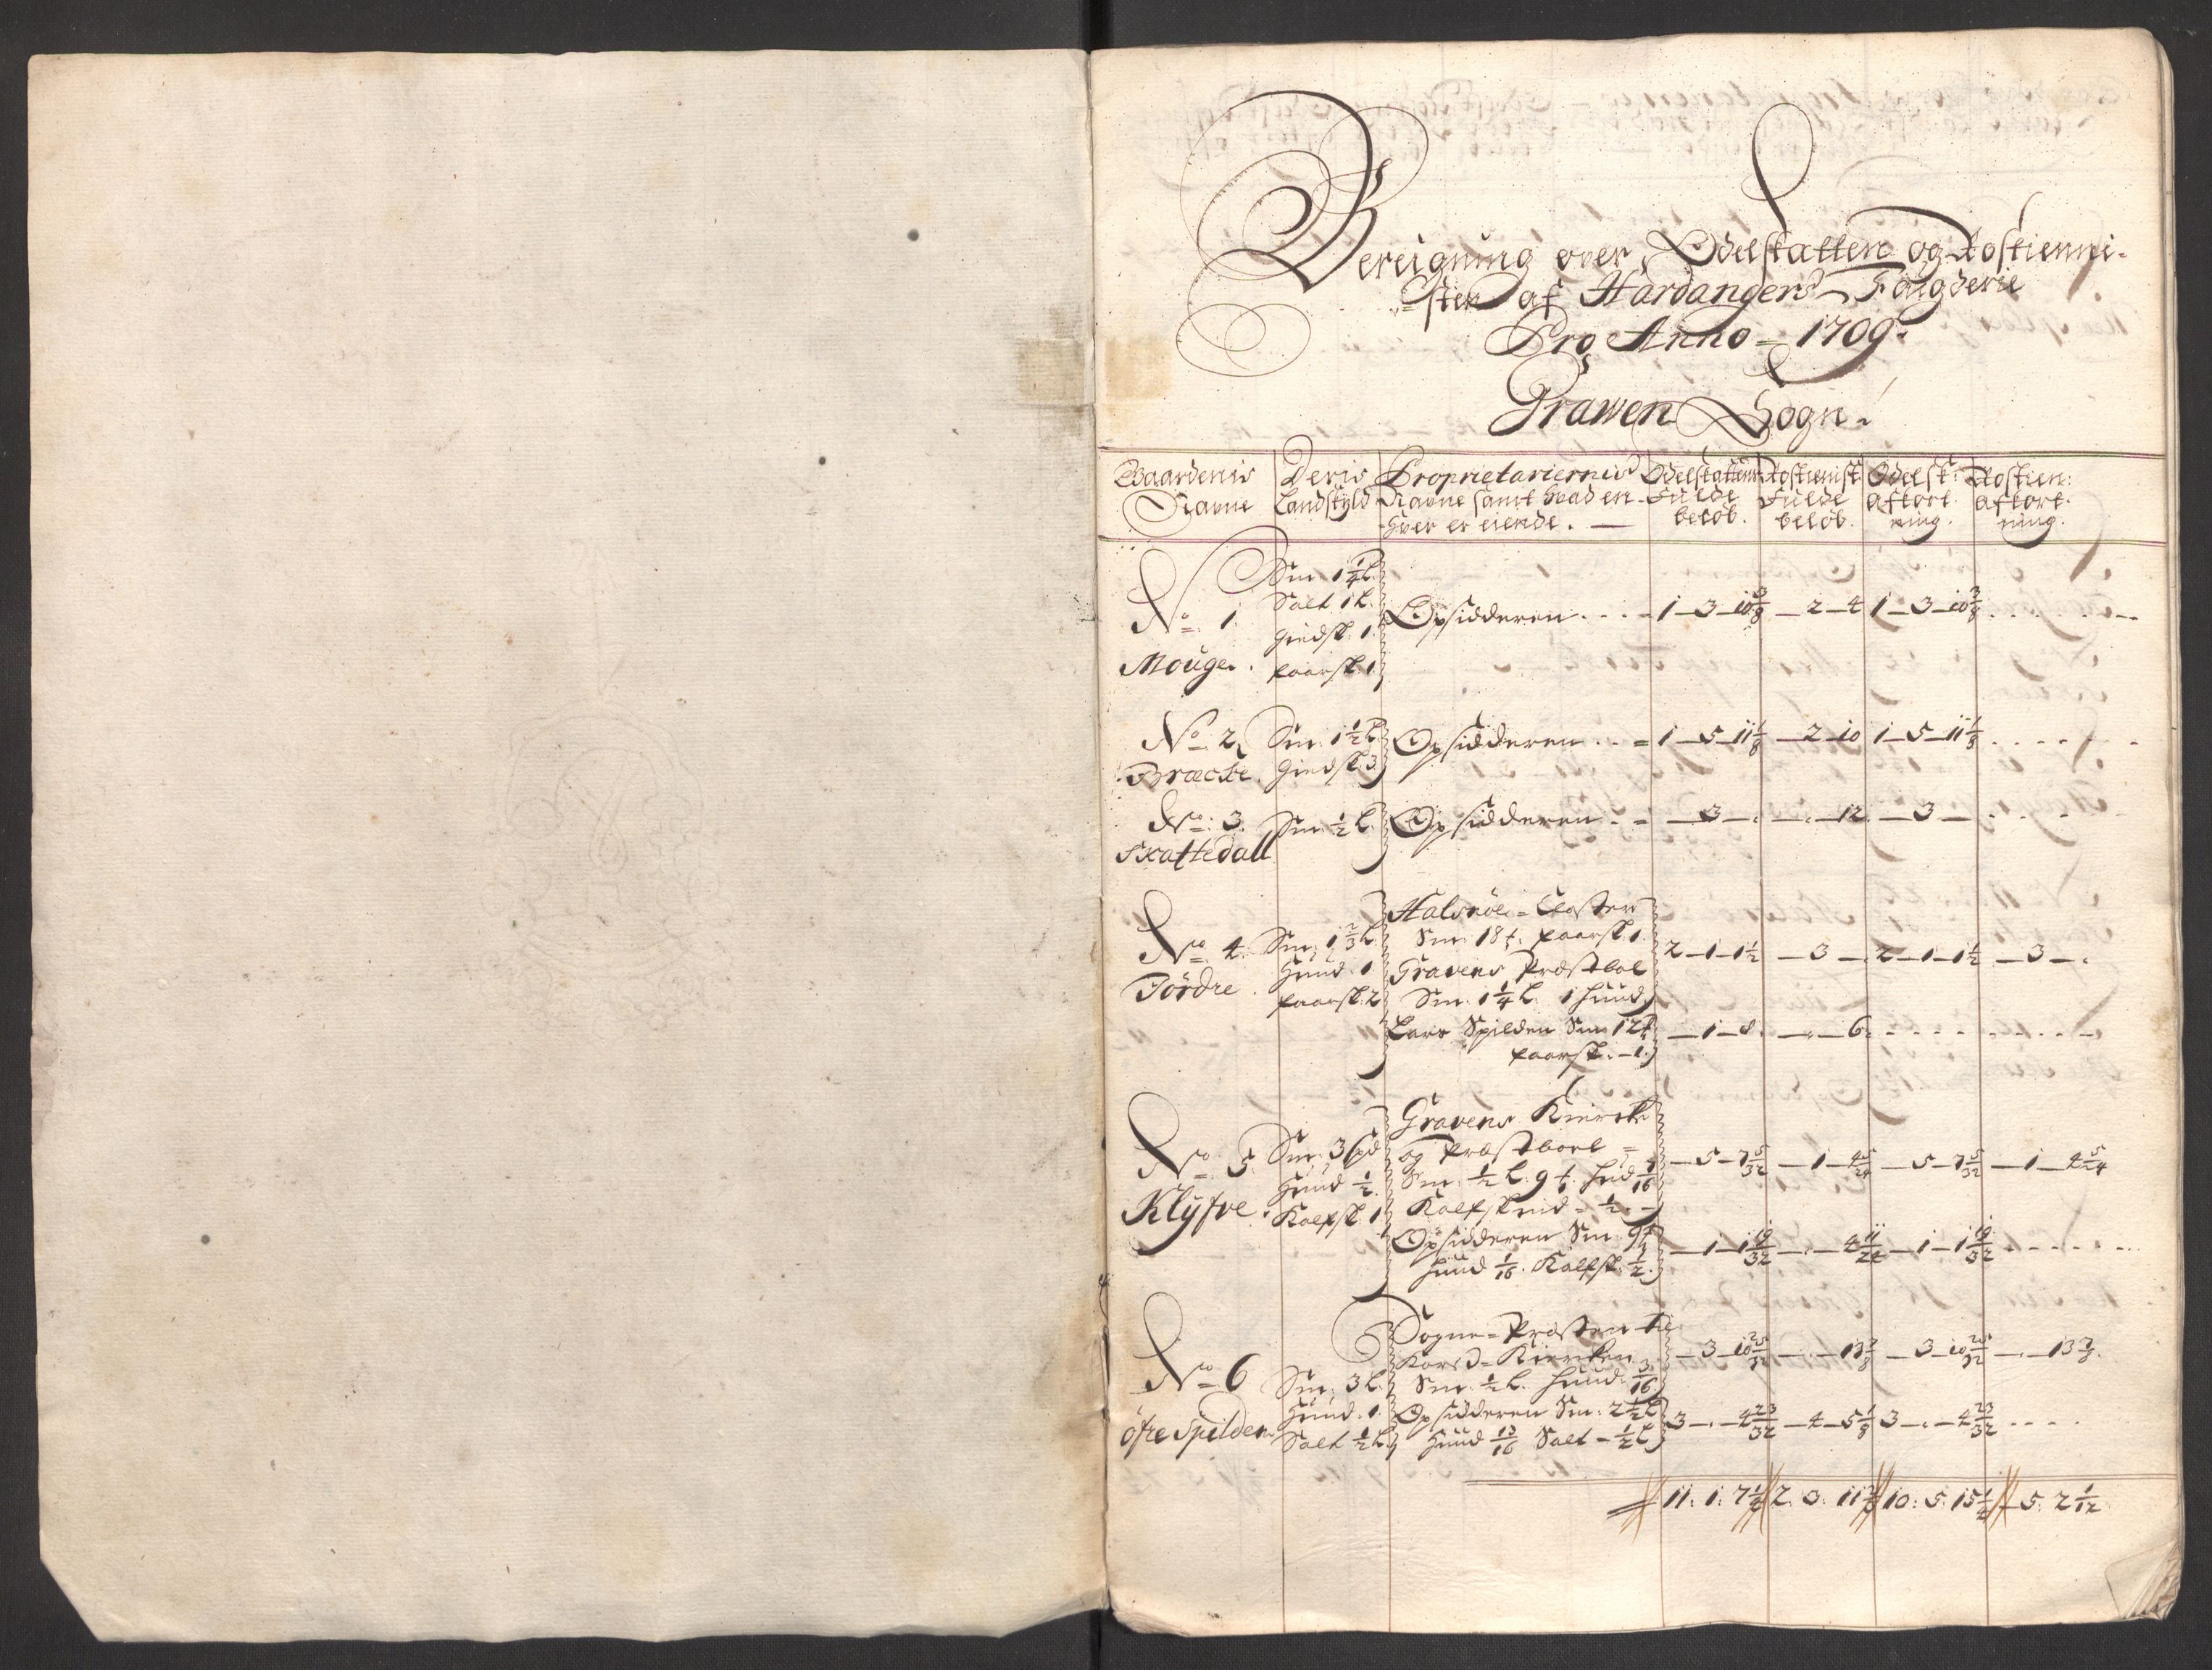 Bereigning over Odelskatten og Rostienni-
sten af Hardangers Fougderie
Pro Anno = 1709.
Grawen Sogn.
Gaardenis Navne | Deris Landskyld | Proprietariernis Navne samt hvad en hver er eiende. | Odelskattens Fulde beløb. | Rostienist: Fulde beløb. | Odelsk: aftort: ning. | Rostien: aftort: ning.
No. 1. Mouge. | Sm: 1 1/4 L. Salt 1 L. Giedsk. 1. faarsk. 1. | Opsidderen | 1 - 3 - 10 3/8 | - 2 - 4 | 1 - 3 - 10 3/8
No. 2. Bracke. | Sm: 1 1/2 L. Giedsk. 3 | Opsidderen | 1 - 5 - 11 1/8 | - 2 - 10 | 1 - 5 - 11 1/8
No. 3. Skattedall | Sm: 1/2 L. | Opsidderen | - 3 - | - 12 | - 3 -
No. 4. Tördre. | Sm: 1 2/3 L. Huud. 1 faarsk. 2 | Halsnöe = Closter
Sm: 18 t. faarsk. 1.
Gravens Præstbol
Sm: 1 1/4 L. 1 huud | 2 - 1 - 1 1/2 | - 3 - | 2 - 1 - 1 1/2 | - 3 -
Lars Spilden Sm: 12 t
faarsk. - 1. | - 1 - 8. | - 6.
No. 5. Klÿfve. | Sm: 3 spd Huud 1/2. Kalfsk. 1 | Gravens Kiercke
og Præstboel =
Sm: 1/2 L. 9 t. hud 7/16
Kalfskind = 1/2. | - 5 - 7 5/32 | - 1 - 4 5/24 | - 5 - 7 5/32 | - 1 - 4 5/24
Opsidderen Sm: 9 t
huud 1/16. Kalfsk. 1/2. | - 1 - 1 19/32 | - 4 11/24 | - 1 - 1 19/32
No. 6 öfre Spilden | Sm: 3 L. Huud. 1. Salt 1/2 L. | Sogne = Præsten til
Korss = Kiercken
Sm: 1/2 L. huud 3/16 | - 3 - 10 25/32 | - 13 7/8 | - 3 - 10 25/32 | - 13 7/8.
Opsidderen Sm: 2 1/2 L
huud 13/16 Salt - 1/2 L | 3 - 4 23/32 | - 4 - 5 1/8 | 3 - 4 23/32
11: 1: 7 1/2 | 2. 3: 11 | 10: 5: 15 1/2 | - 5: 2 1/12